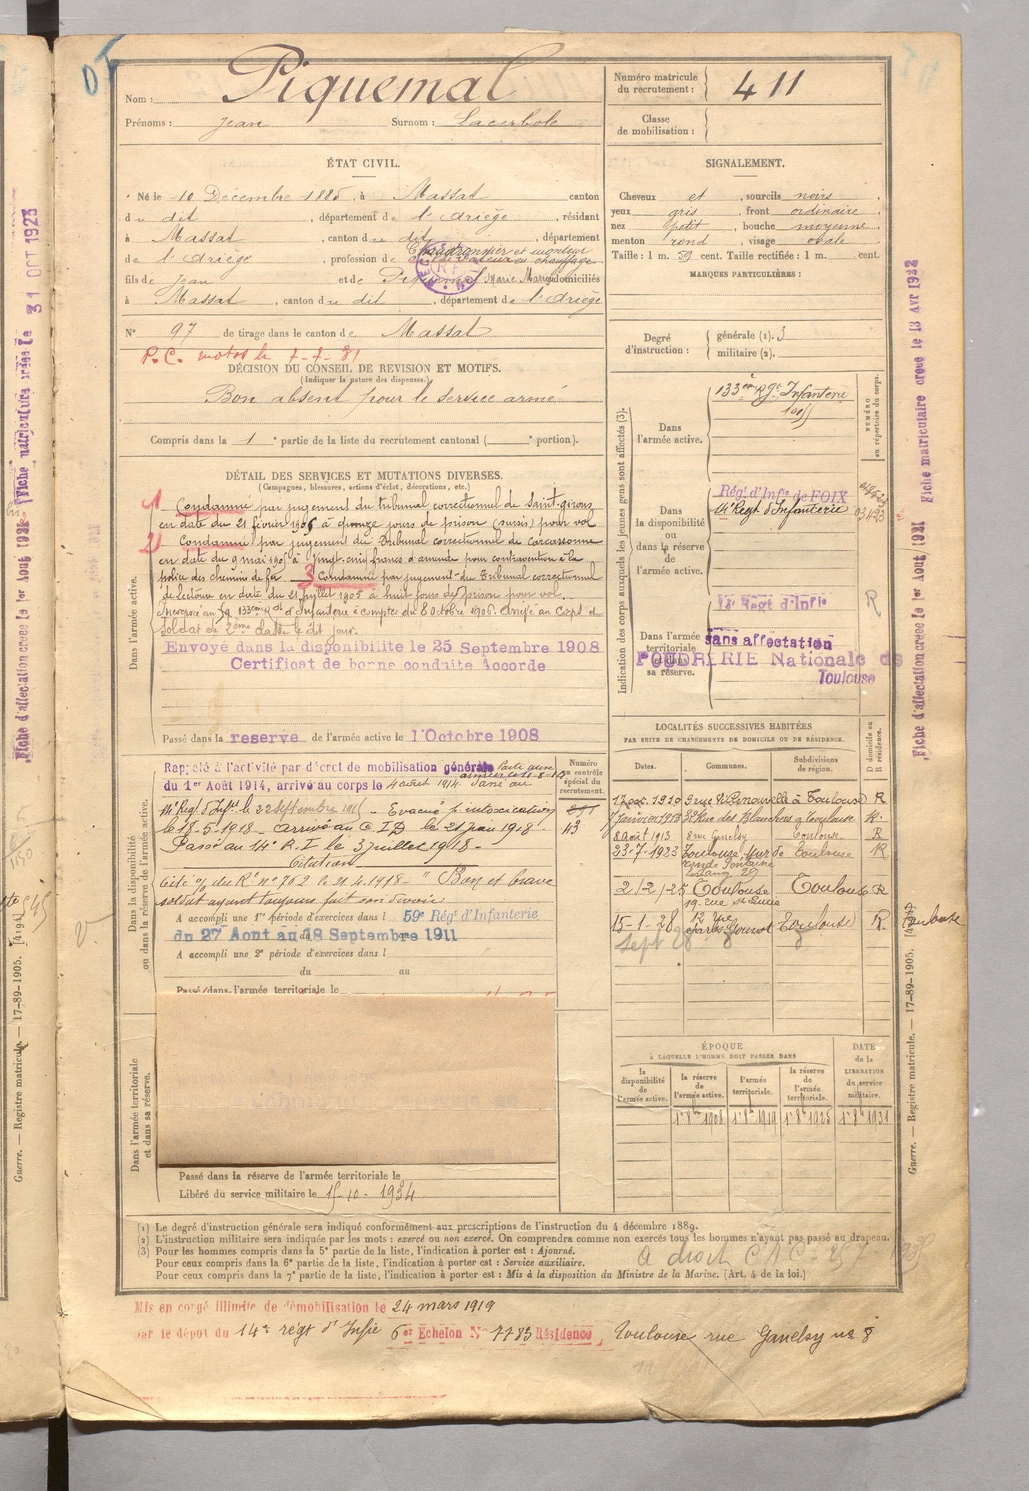 Nom : Piquemal
Prénoms : Jean Surnom : Lacerbole
Numéro matricule
du recrutement : 411
Classe
de mobilisation :
ÉTAT CIVIL.
Né le 10 Décembre 1885, à Massat canton
du dit, département de l'Ariège, résidant
à Massat, canton du dit, département
de l'Ariège, profession de Chaudronnier et monteur
chauffage
fils de Jean et de Piquemal Marie domiciliés
à Massat, canton du dit, département de l'Ariège
N° 97 de tirage dans le canton de Massat
P.C. motos le 7-7-31
DÉCISION DU CONSEIL DE REVISION ET MOTIFS.
(Indiquer la nature des dispenses.)
Bon absent pour le service armé
Compris dans la 1e partie de la liste du recrutement cantonal ( e portion).
SIGNALEMENT.
Cheveux et, sourcils noirs,
yeux gris, front ordinaire,
nez petit, bouche moyenne,
menton rond, visage ovale.
Taille : 1 m. 59 cent. Taille rectifiée : 1 m. cent.
MARQUES PARTICULIÈRES :
Degré
d'instruction :
générale (1). 3
militaire (2).
DÉTAIL DES SERVICES ET MUTATIONS DIVERSES.
(Campagnes, blessures, actions d'éclat, décorations, etc.)
Dans l'armée active.
1 Condamné par jugement du tribunal correctionnel de Saint-girons
en date du 21 février 1905 à quinze jours de prison (sursis) pour vol
2) Condamné par jugement du Tribunal correctionnel de Carcassonne
en date du 9 mai 1905 à vingt-cinq francs d'amende pour contravention à la
police des chemins de fer 3 Condamné par jugement du Tribunal correctionnel
de Lectoure en date du 21 juillet 1905 à huit jours de prison pour vol.
Incorporé au 133eme Rgt d'Infanterie à compter du 8 octobre 1906. Arrivé au Corps et
Soldat de 2ème classe le dit jour.
Envoyé dans la disponibilite le 25 Septembre 1908
Certificat de bonne conduite Accorde
Passé dans la reserve de l'armée active le 1 Octobre 1908
Dans la disponibilité
ou dans la réserve de l'armée active.
Numéro
au contrôle
spécial du
recrutement.
43
Rappelé à l'activité par décret de mobilisation générale
du 1er Août 1914, arrivé au corps le 4 aout 1914. Passé au
14e Régt d'Infie le 22 septembre 1915 - Evacué p. intoxication
le 18-5-1918 - Arrivé au C.I.D le 21 juin 1918 -
Passé au 14e R.I. le 3 juillet 1918 -
Citation
Cité o/ du Rt n° 762 le 21.4.1918 - " Bon et brave
soldat ayant toujours fait son devoir
A accompli une 1re période d'exercices dans l 59e Régt d'Infanterie
du 27 Aout au 18 Septembre 1911
A accompli une 2e période d'exercices dans l
du au
Passé dans l'armée territoriale le
Dans l'armée territoriale
et dans sa réserve.
Passé dans la réserve de l'armée territoriale le
Libéré du service militaire le 15-10-1934
Indication des corps auxquels les jeunes gens sont affectés (3).
NUMÉRO
au répertoire du corps.
Dans
l'armée active.
133e Rgt Infanterie
Dans
la disponibilité
ou
dans la réserve
de
l'armée active.
Régt d'Infie de FOIX
14e Regt d'Infanterie
Dans l'armée
territoriale
et dans
sa réserve.
14e Regt d'Infie
sans affectation
POUDRERIE Nationale de
Toulouse
R
LOCALITÉS SUCCESSIVES HABITÉES
PAR SUITE DE CHANGEMENTS DE DOMICILE OU DE RÉSIDENCE.
Dates. Communes. Subdivisions
de région. D domicile ou
R résidence.
1910 3 rue à Toulouse R
7 janvier 1913 Rue des Blanchers à Toulouse R
8 Août 1913 8 rue Ganelsy Toulouse R
23-7-1923 Toulouse, de Toulouse R
29
2/2/25 Toulouse Toulouse R
19, rue Ste Lucie
15-1-28 12 Toulouse R. Toulouse
Sept 28
ÉPOQUE
À LAQUELLE L'HOMME DOIT PASSER DANS
DATE
de la
LIBÉRATION
du service
militaire.
la
disponibilité
de
l'armée active.
la réserve
de
l'armée active.
l'armée
territoriale.
la réserve
de
l'armée
territoriale.
1 8bre 1908 1 8bre 1919 1 8bre 1925 1 8bre 1931
(1) Le degré d'instruction générale sera indiqué conformément aux prescriptions de l'instruction du 4 décembre 1889.
(2) L'instruction militaire sera indiquée par les mots : exercé ou non exercé. On comprendra comme non exercés tous les hommes n'ayant pas passé au drapeau.
(3) Pour les hommes compris dans la 5e partie de la liste, l'indication à porter est : Ajourné.
Pour ceux compris dans la 6e partie de la liste, l'indication à porter est : Service auxiliaire.
Pour ceux compris dans la 7e partie de la liste, l'indication à porter est : Mis à la disposition du Ministre de la Marine. (Art. 4 de la loi.)
A droit C.A.C.
Mis en congé illimité de démobilisation le 24 mars 1919
par le dépot du 14e régt d'Infie 6er Echelon N° 7783 Résidence Toulouse rue Ganelsy n° 8
Fiche matriculaire créée le 13 Avr 1922
Fiche d'affectation créée le 1er Août 1921
Guerre. — Registre matricule. — 17-89-1905.
Fiche matriculaire créée le 31 OCT 1923
Fiche d'affectation créée le 1er Août 1921
Guerre. — Registre matricule. — 17-89-1905. [4194]